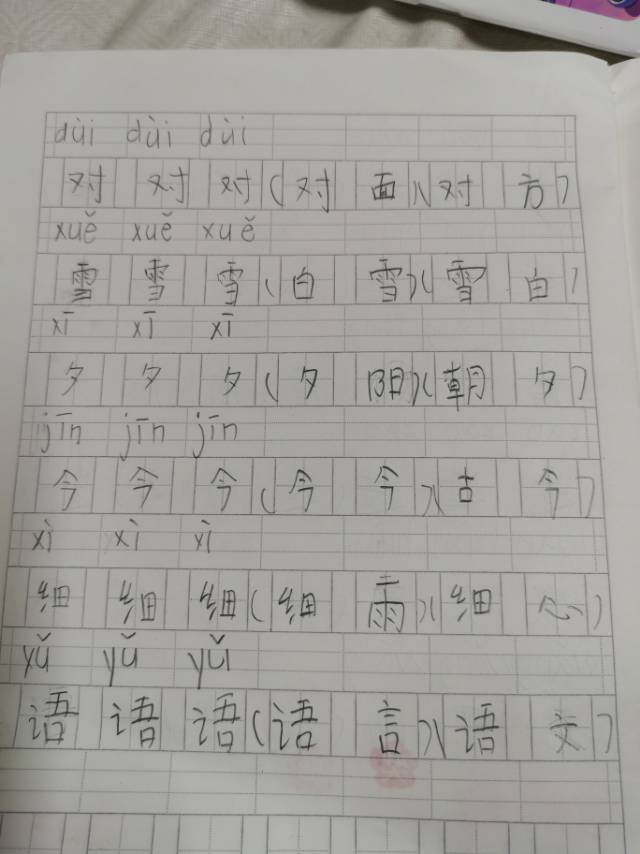 dùi dùi dùi
对 对 对(对 面)(对 方)
xuě xuě xuě
雪 雪 雪(白 雪)(雪 白)
xī xī xī
夕 夕 夕(夕 阳)(朝 夕)
jīn jīn jīn
今 今 今(今 今)(古 今)
xì xì xì
细 细 细(细 雨)(细 心)
yǔ yǔ yǔ
语 语 语(语 言)(语 文)